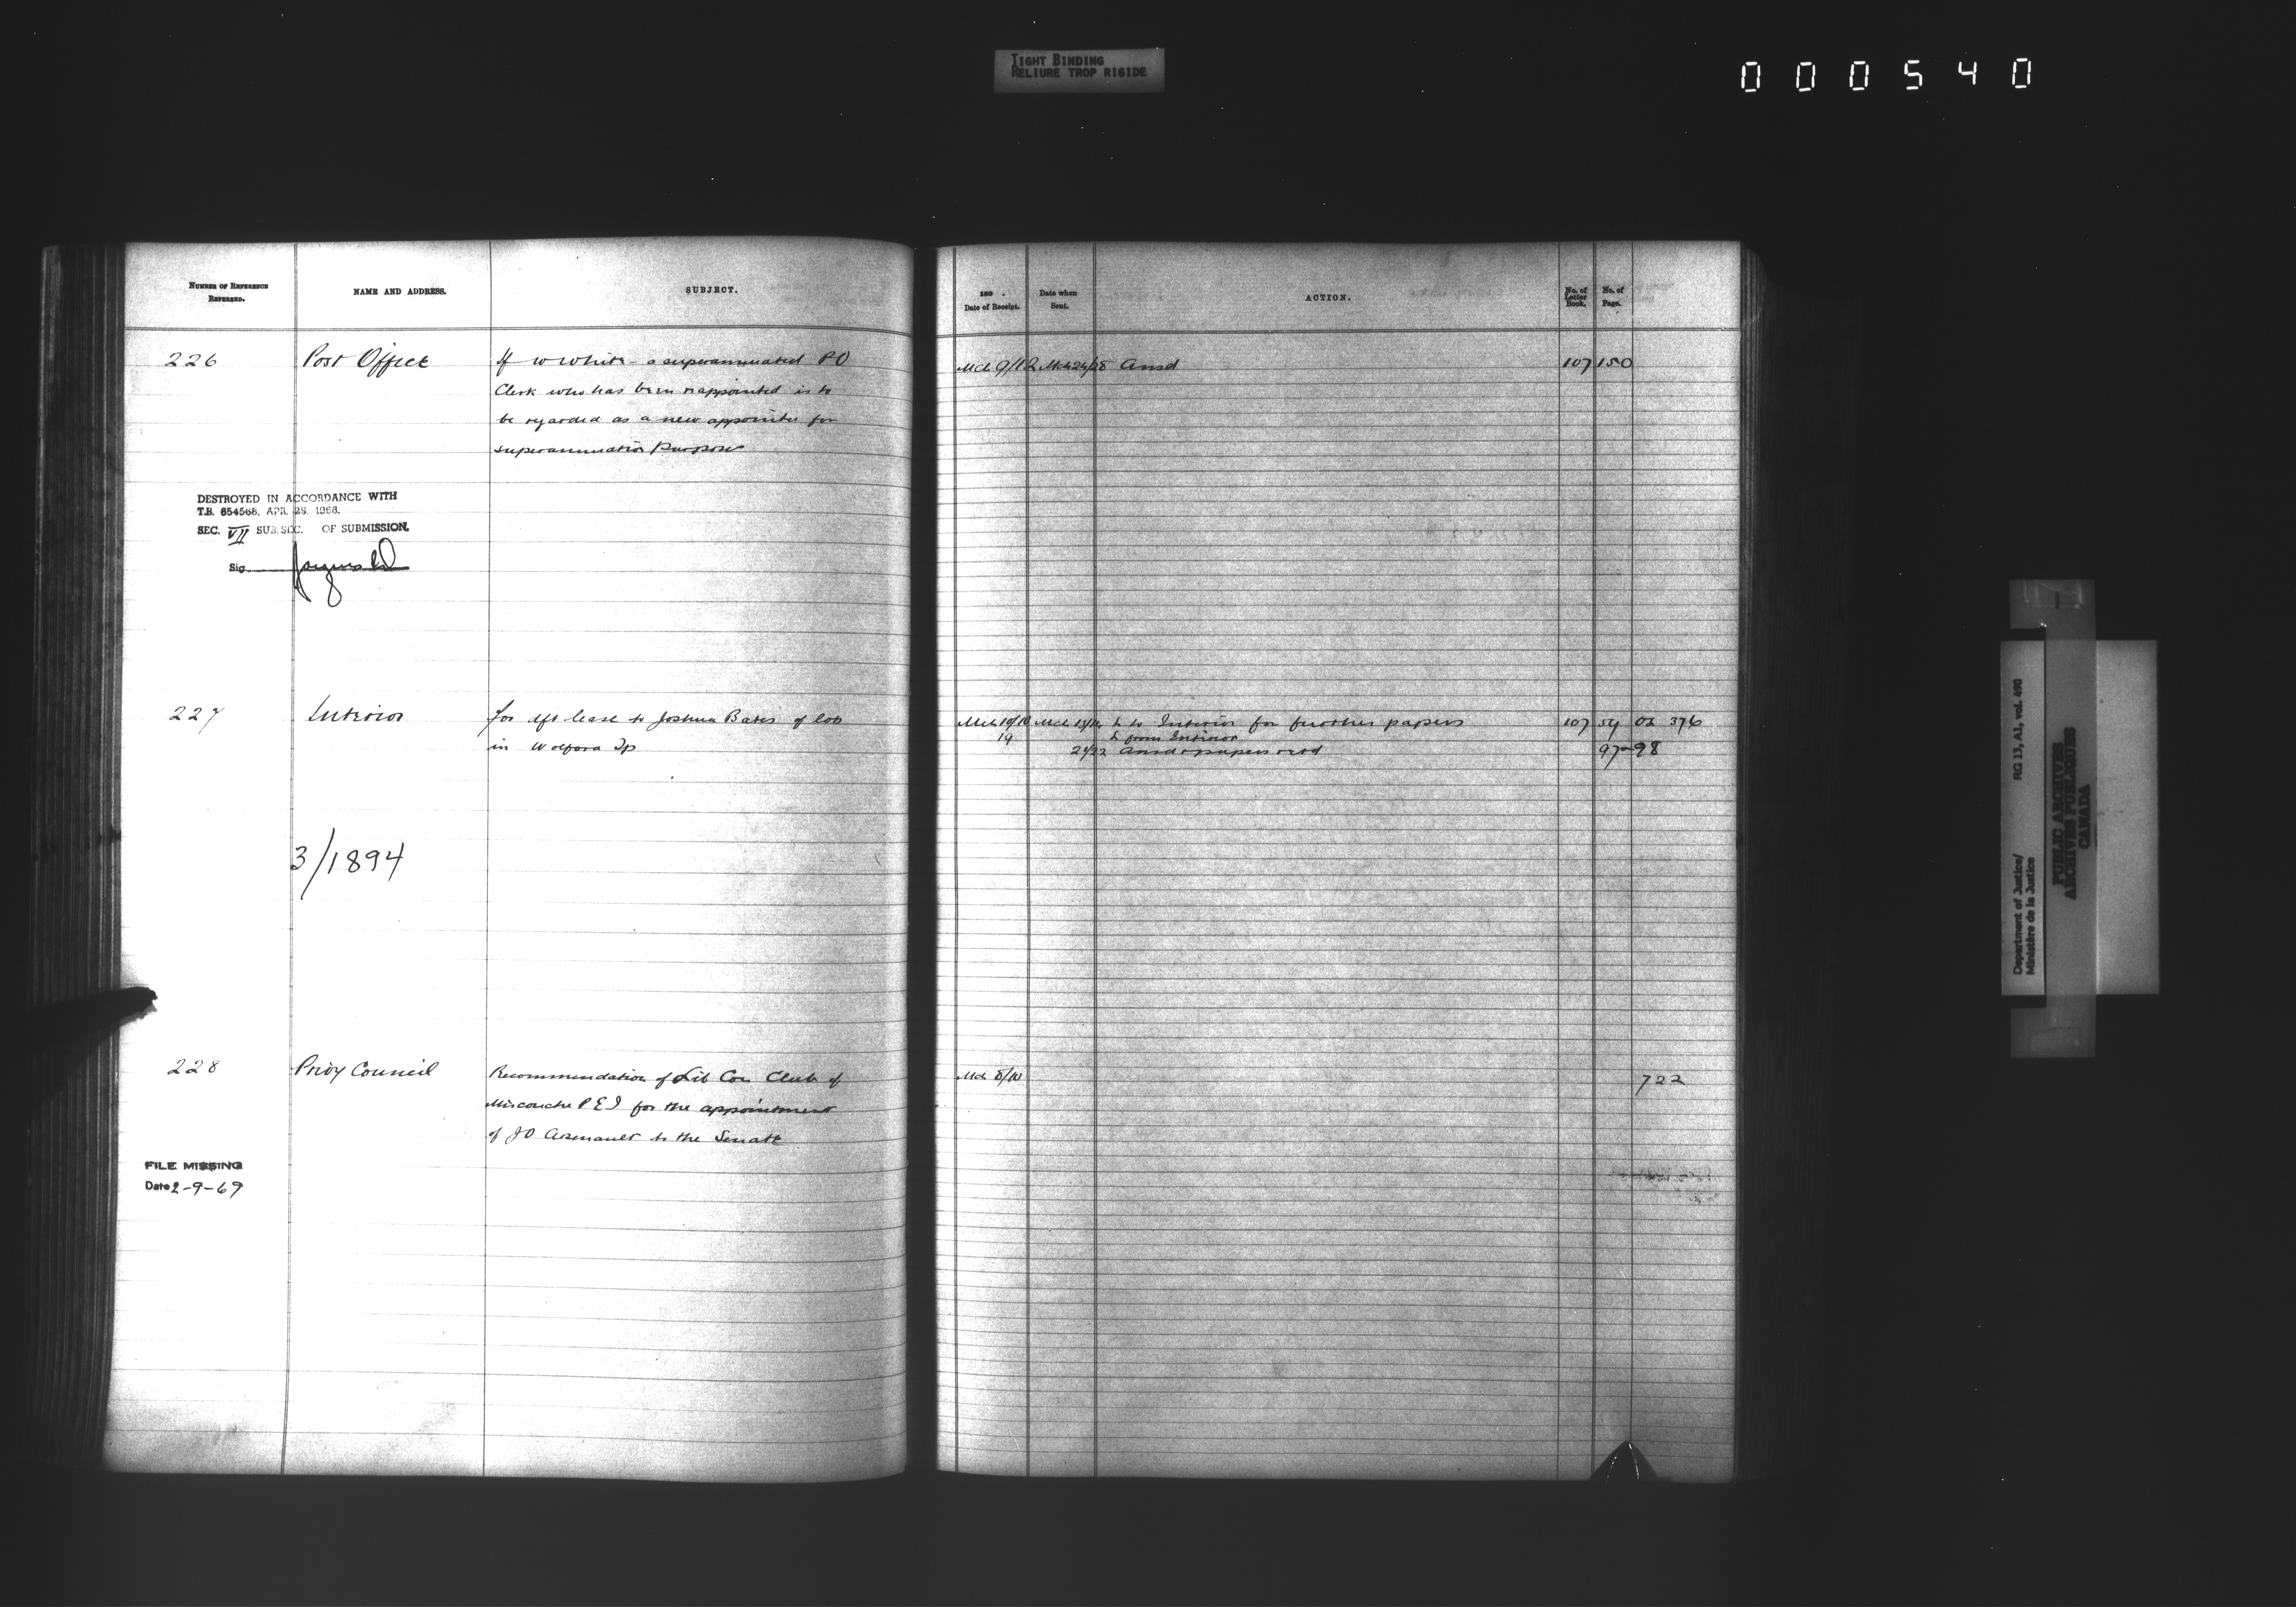 TIGHT BINDING
RELIURE TROP RIGIDE
000540
NUMBER OF REFERENCE
REFERRED.
NAME AND ADDRESS.
SUBJECT.
189 .
Date of Receipt.
Date when
Sent.
ACTION.
No. of
Letter
Book.
No. of
Page.
226 Post Office If W White - a superannuated PO Mch 9/12 Mch 24/28 Ansd 107 150
Clerk who has been reappointed is to
be regarded as a new appointee for
superannuation purposes
DESTROYED IN ACCORDANCE WITH
T.B. 654568, APR. 29, 1966.
SEC. VII SUB.SEC. OF SUBMISSION.
Sig.
227 Interior for dft lease to Joshua Bates of lots Mch 10/10 Mch 13/14 L to Interior for further papers 107 54 02 376
19 L from Interior
in Wolford Tp 21/22 Ansd & papers retd 97-98
3/1894
228 Privy Council Recommendation of Lib Con Club of Mch 8/10 722
Miscouche P E I for the appointment
of J O Arsenault to the Senate
FILE MISSING
Date 2-9-69
Department of Justice/
Ministère de la Justice
RG 13, A1, vol. 490
PUBLIC ARCHIVES
ARCHIVES PUBLIQUES
CANADA